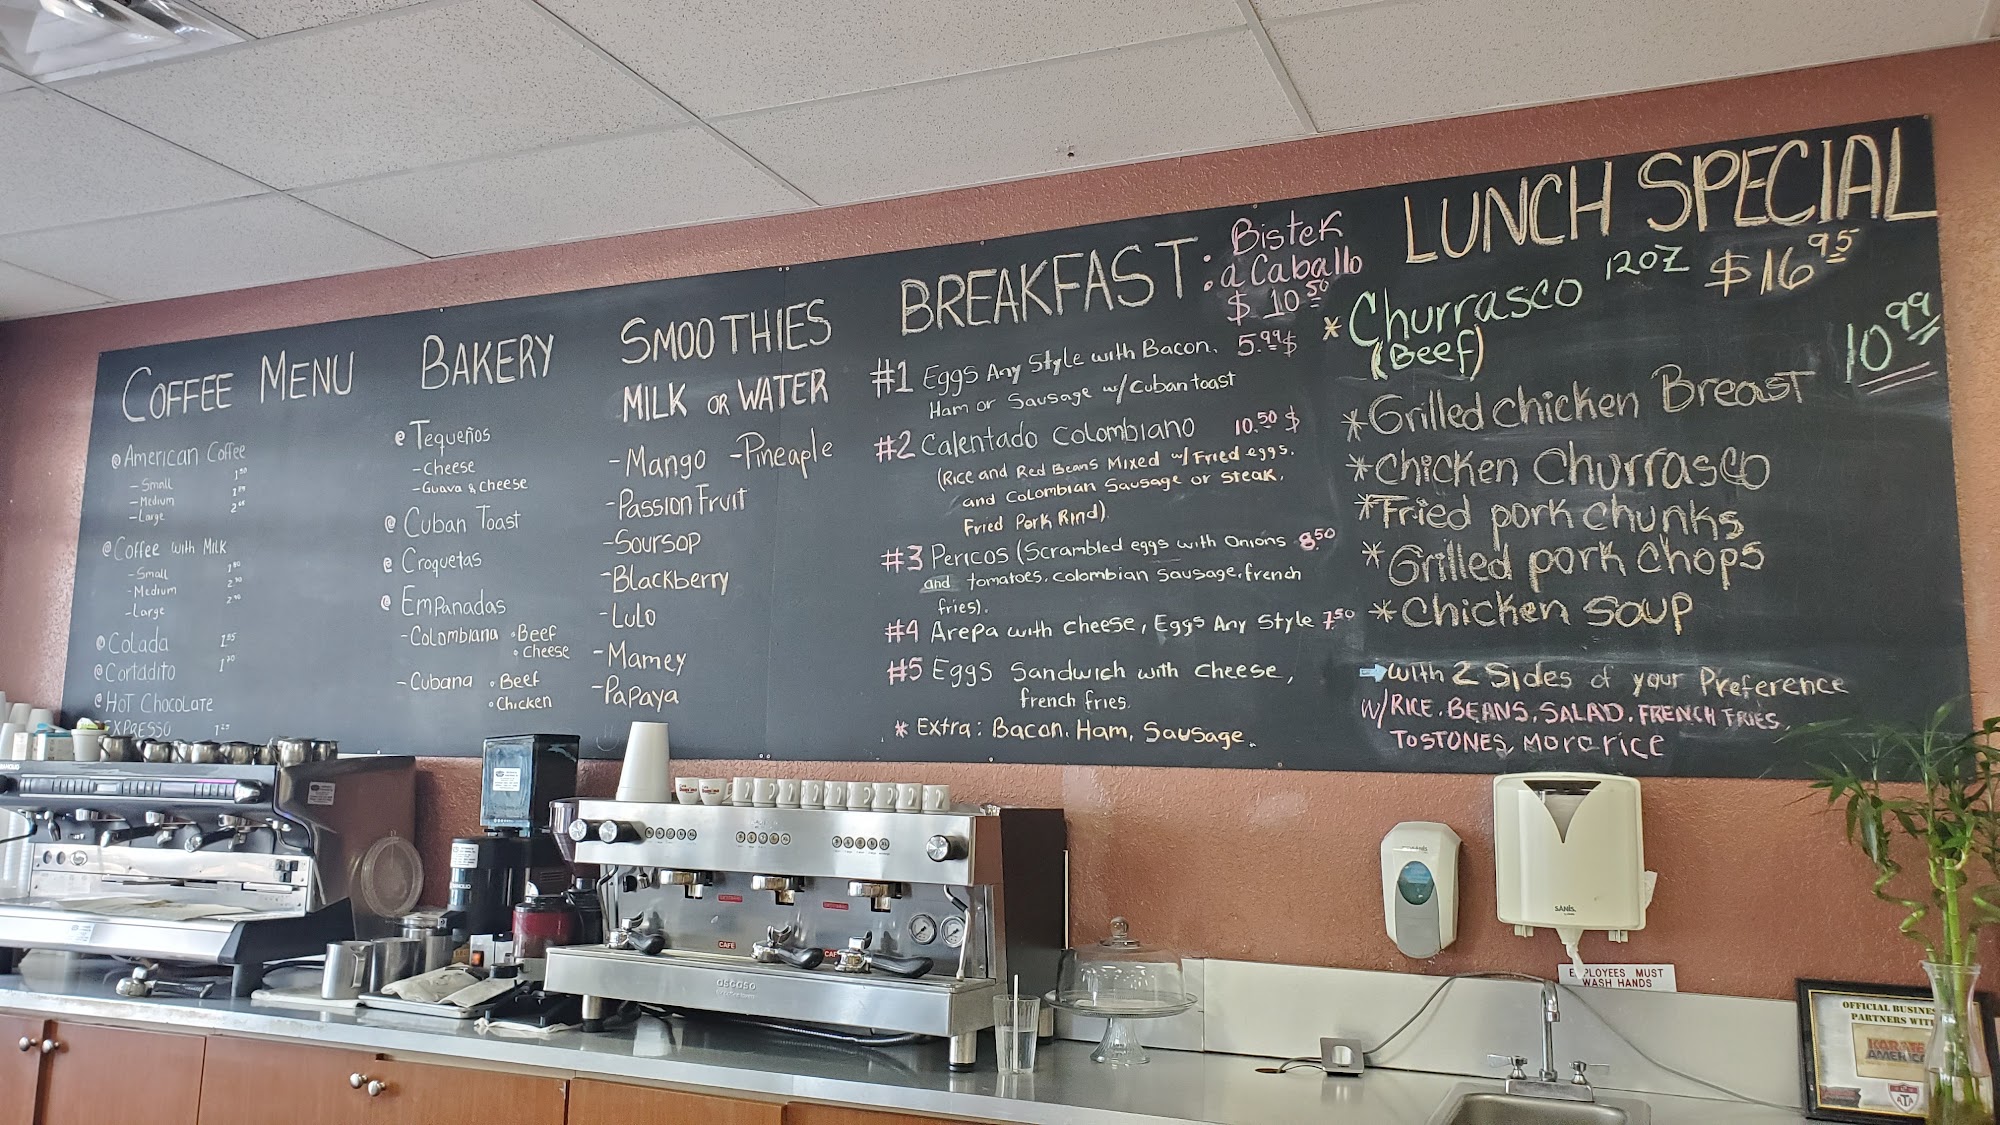 COFFEE MENU
@ American Coffee
- Small
- Medium
- Large
@ Coffee with Milk
- Small
- Medium
- Large
@ Colada
@ Cortadito
@ Hot Chocolate
EXPRESSO
BAKERY
@ Tequeños
- Cheese
- Guava & Cheese
@ Cuban Toast
@ Croquetas
@ Empanadas
- Colombiana • Beef
• Cheese
- Cubana • Beef
• Chicken
SMOOTHIES
MILK OR WATER
- Mango - Pineaple
- Passion Fruit
- Soursop
- Blackberry
- Lulo
- Mamey
- Papaya
BREAKFAST: Bistek
a Caballo
$ 10.50
#1 Eggs Any Style with Bacon, 5.99$
Ham or Sausage w/ Cuban toast
#2 Calentado Colombiano 10.50 $
(Rice and Red Beans Mixed w/ Fried eggs,
and Colombian Sausage or steak,
Fried Pork Rind)
#3 Pericos (Scrambled eggs with Onions 8.50
and tomatoes, colombian Sausage, french
fries).
#4 Arepa with cheese, Eggs Any Style 7.50
#5 Eggs Sandwich with cheese,
french fries.
* Extra: Bacon, Ham, Sausage.
LUNCH SPECIAL
* Churrasco 12OZ $16.95
(Beef)
10.99
* Grilled chicken Breast
* Chicken Churrasco
* Fried pork chunks
* Grilled pork chops
* Chicken soup
with 2 Sides of your Preference
W/ RICE, BEANS, SALAD, FRENCH FRIES,
TOSTONES, Moro rice
CAFE
ascaso
SANIS
EMPLOYEES MUST
WASH HANDS
OFFICIAL BUSINE
PARTNERS WIT
AMERIC
ATA